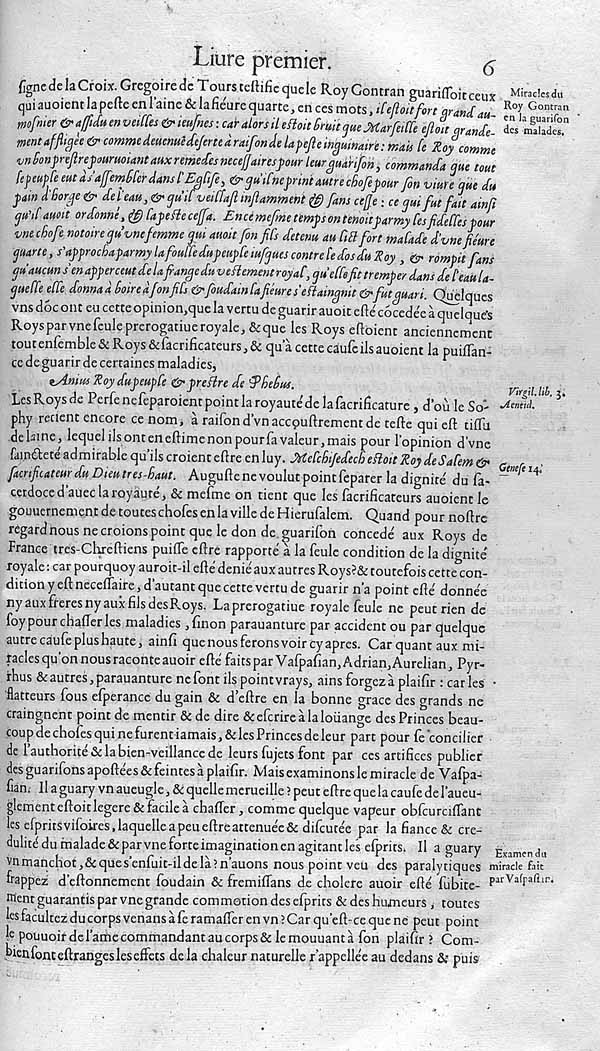 Liure premier. 6
ſigne de la Croix. Gregoire de Tours teſtifie que le Roy Gontran guariſſoit ceux
qui auoient la peſte en l'aine & la fiéure quarte, en ces mots, il eſtoit fort grand au-
moſnier & aſſidu en veilles & ieuſnes : car alors il eſtoit bruit que Marſeille eſtoit grande-
ment affligée & comme deuenuë deſerte à raiſon de la peſte inguinaire : mais le Roy comme
vn bon preſtre pouruoiant aux remedes neceſſaires pour leur guariſon, commanda que tout
le peuple eut à s'aſſembler dans l'Egliſe, & qu'il ne print autre choſe pour ſon viure que du
pain d'horge & de l'eau, & qu'il veillaſt inſtamment & ſans ceſſe : ce qui fut fait ainſi
qu'il auoit ordonné, & la peſte ceſſa. En ce meſme temps on tenoit parmy les fidelles pour
vne choſe notoire qu'vne femme qui auoit ſon fils detenu au lict fort malade d'vne fiéure
quarte, s'approcha parmy la foulle du peuple iuſques contre le dos du Roy, & rompit ſans
qu'aucun s'en apperceut de la frange du veſtement royal, qu'elle fit tremper dans de l'eau la-
quelle elle donna à boire à ſon fils & ſoudain la fiéure s'eſtaingnit & fut guari. Quelques
vns dōc ont eu cette opinion, que la vertu de guarir auoit eſté cōcedée à quelques
Roys par vne ſeule prerogatiue royale, & que les Roys eſtoient anciennement
tout enſemble & Roys & ſacrificateurs, & qu'à cette cauſe ils auoient la puiſſan-
ce de guarir de certaines maladies,
Anius Roy du peuple & preſtre de Phebus.
Les Roys de Perſe ne ſeparoient point la royauté de la ſacrificature, d'où le So-
phy retient encore ce nom, à raiſon d'vn accouſtrement de teſte qui eſt tiſſu
de laine, lequel ils ont en eſtime non pour ſa valeur, mais pour l'opinion d'vne
ſaincteté admirable qu'ils croient eſtre en luy. Melchiſedech eſtoit Roy de Salem &
ſacrificateur du Dieu tres-haut. Auguſte ne voulut point ſeparer la dignité du ſa-
cerdoce d'auec la royauté, & meſme on tient que les ſacrificateurs auoient le
gouuernement de toutes choſes en la ville de Hieruſalem. Quand pour noſtre
regard nous ne croions point que le don de guariſon concedé aux Roys de
France tres-Chreſtiens puiſſe eſtre rapporté à la ſeule condition de la dignité
royale : car pourquoy auroit-il eſté denié aux autres Roys? & toutefois cette con-
dition y eſt neceſſaire, d'autant que cette vertu de guarir n'a point eſté donnée
ny aux freres ny aux fils des Roys. La prerogatiue royale ſeule ne peut rien de
ſoy pour chaſſer les maladies, ſinon parauanture par accident ou par quelque
autre cauſe plus haute, ainſi que nous ferons voir cy apres. Car quant aux mi-
racles qu'on nous raconte auoir eſté faits par Vaſpaſian, Adrian, Aurelian, Pyr-
rhus & autres, parauanture ne ſont ils point vrays, ains forgez à plaiſir : car les
flatteurs ſous eſperance du gain & d'eſtre en la bonne grace des grands ne
craingnent point de mentir & de dire & eſcrire à la loüange des Princes beau-
coup de choſes qui ne furent iamais, & les Princes de leur part pour ſe concilier
de l'authorité & la bien-veillance de leurs ſujets font par ces artifices publier
des guariſons apoſtées & feintes à plaiſir. Mais examinons le miracle de Vaſpa-
ſian. Il a guary vn aueugle, & quelle merueille ? peut eſtre que la cauſe de l'aueu-
glement eſtoit legere & facile à chaſſer, comme quelque vapeur obſcurciſſant
les eſprits viſoires, laquelle a peu eſtre attenuée & diſcutée par la fiance & cre-
dulité du malade & par vne forte imagination en agitant les eſprits. Il a guary
vn manchot, & que s'enſuit-il de là ? n'auons nous point veu des paralytiques
frappez d'eſtonnement ſoudain & fremiſſans de cholere auoir eſté ſubite-
ment guarantis par vne grande commotion des eſprits & des humeurs, toutes
les facultez du corps venans à ſe ramaſſer en vn ? Car qu'eſt-ce que ne peut point
le pouuoir de l'ame commandant au corps & le mouuant à ſon plaiſir ? Com-
bien ſont eſtranges les effets de la chaleur naturelle r'appellée au dedans & puis
Miracles du
Roy Gontran
en la guariſon
des malades.
Virgil. lib. 3.
Aeneid.
Geneſe 14.
Examen du
miracle fait
par Vaſpaſian.